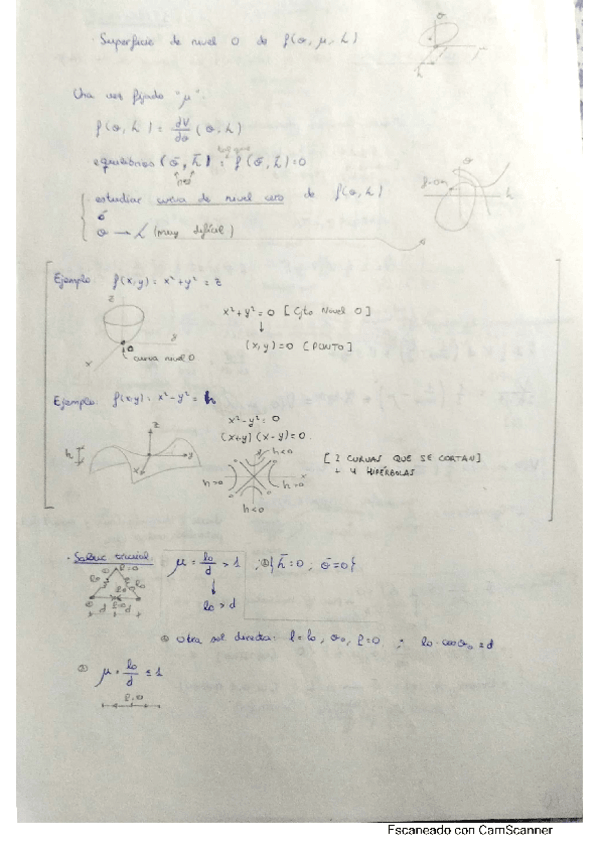 · Superficie de nivel 0 de f(θ, μ, h)
Una vez fijado "μ".
f(θ, h) = dV/dθ (θ, h)
equilibrios (θ̄, h̄) : f(θ̄, h̄) = 0
· estudiar curva de nivel cero de f(θ, h)
ó
θ → h (muy difícil)
Ejemplo: f(x,y) = x² + y² = z
x² + y² = 0 [Cjto Nivel 0]
↓
(x, y) = 0 [PUNTO]
curva nivel 0
Ejemplo: f(x,y) = x² - y² = h
x² - y² = 0
(x+y) (x-y) = 0
[2 CURVAS QUE SE CORTAN]
+ 4 HIPÉRBOLAS
h<0
h>0
h<0
μ = l₀/d > 1
{h̄ = 0, θ̄ = 0}
↓
l₀ > d
Otra sol directa: l = l₀, θ₀, P = 0 ; l₀ · cosθ₀ = d
μ = l₀/d ≤ 1
Escaneado con CamScanner